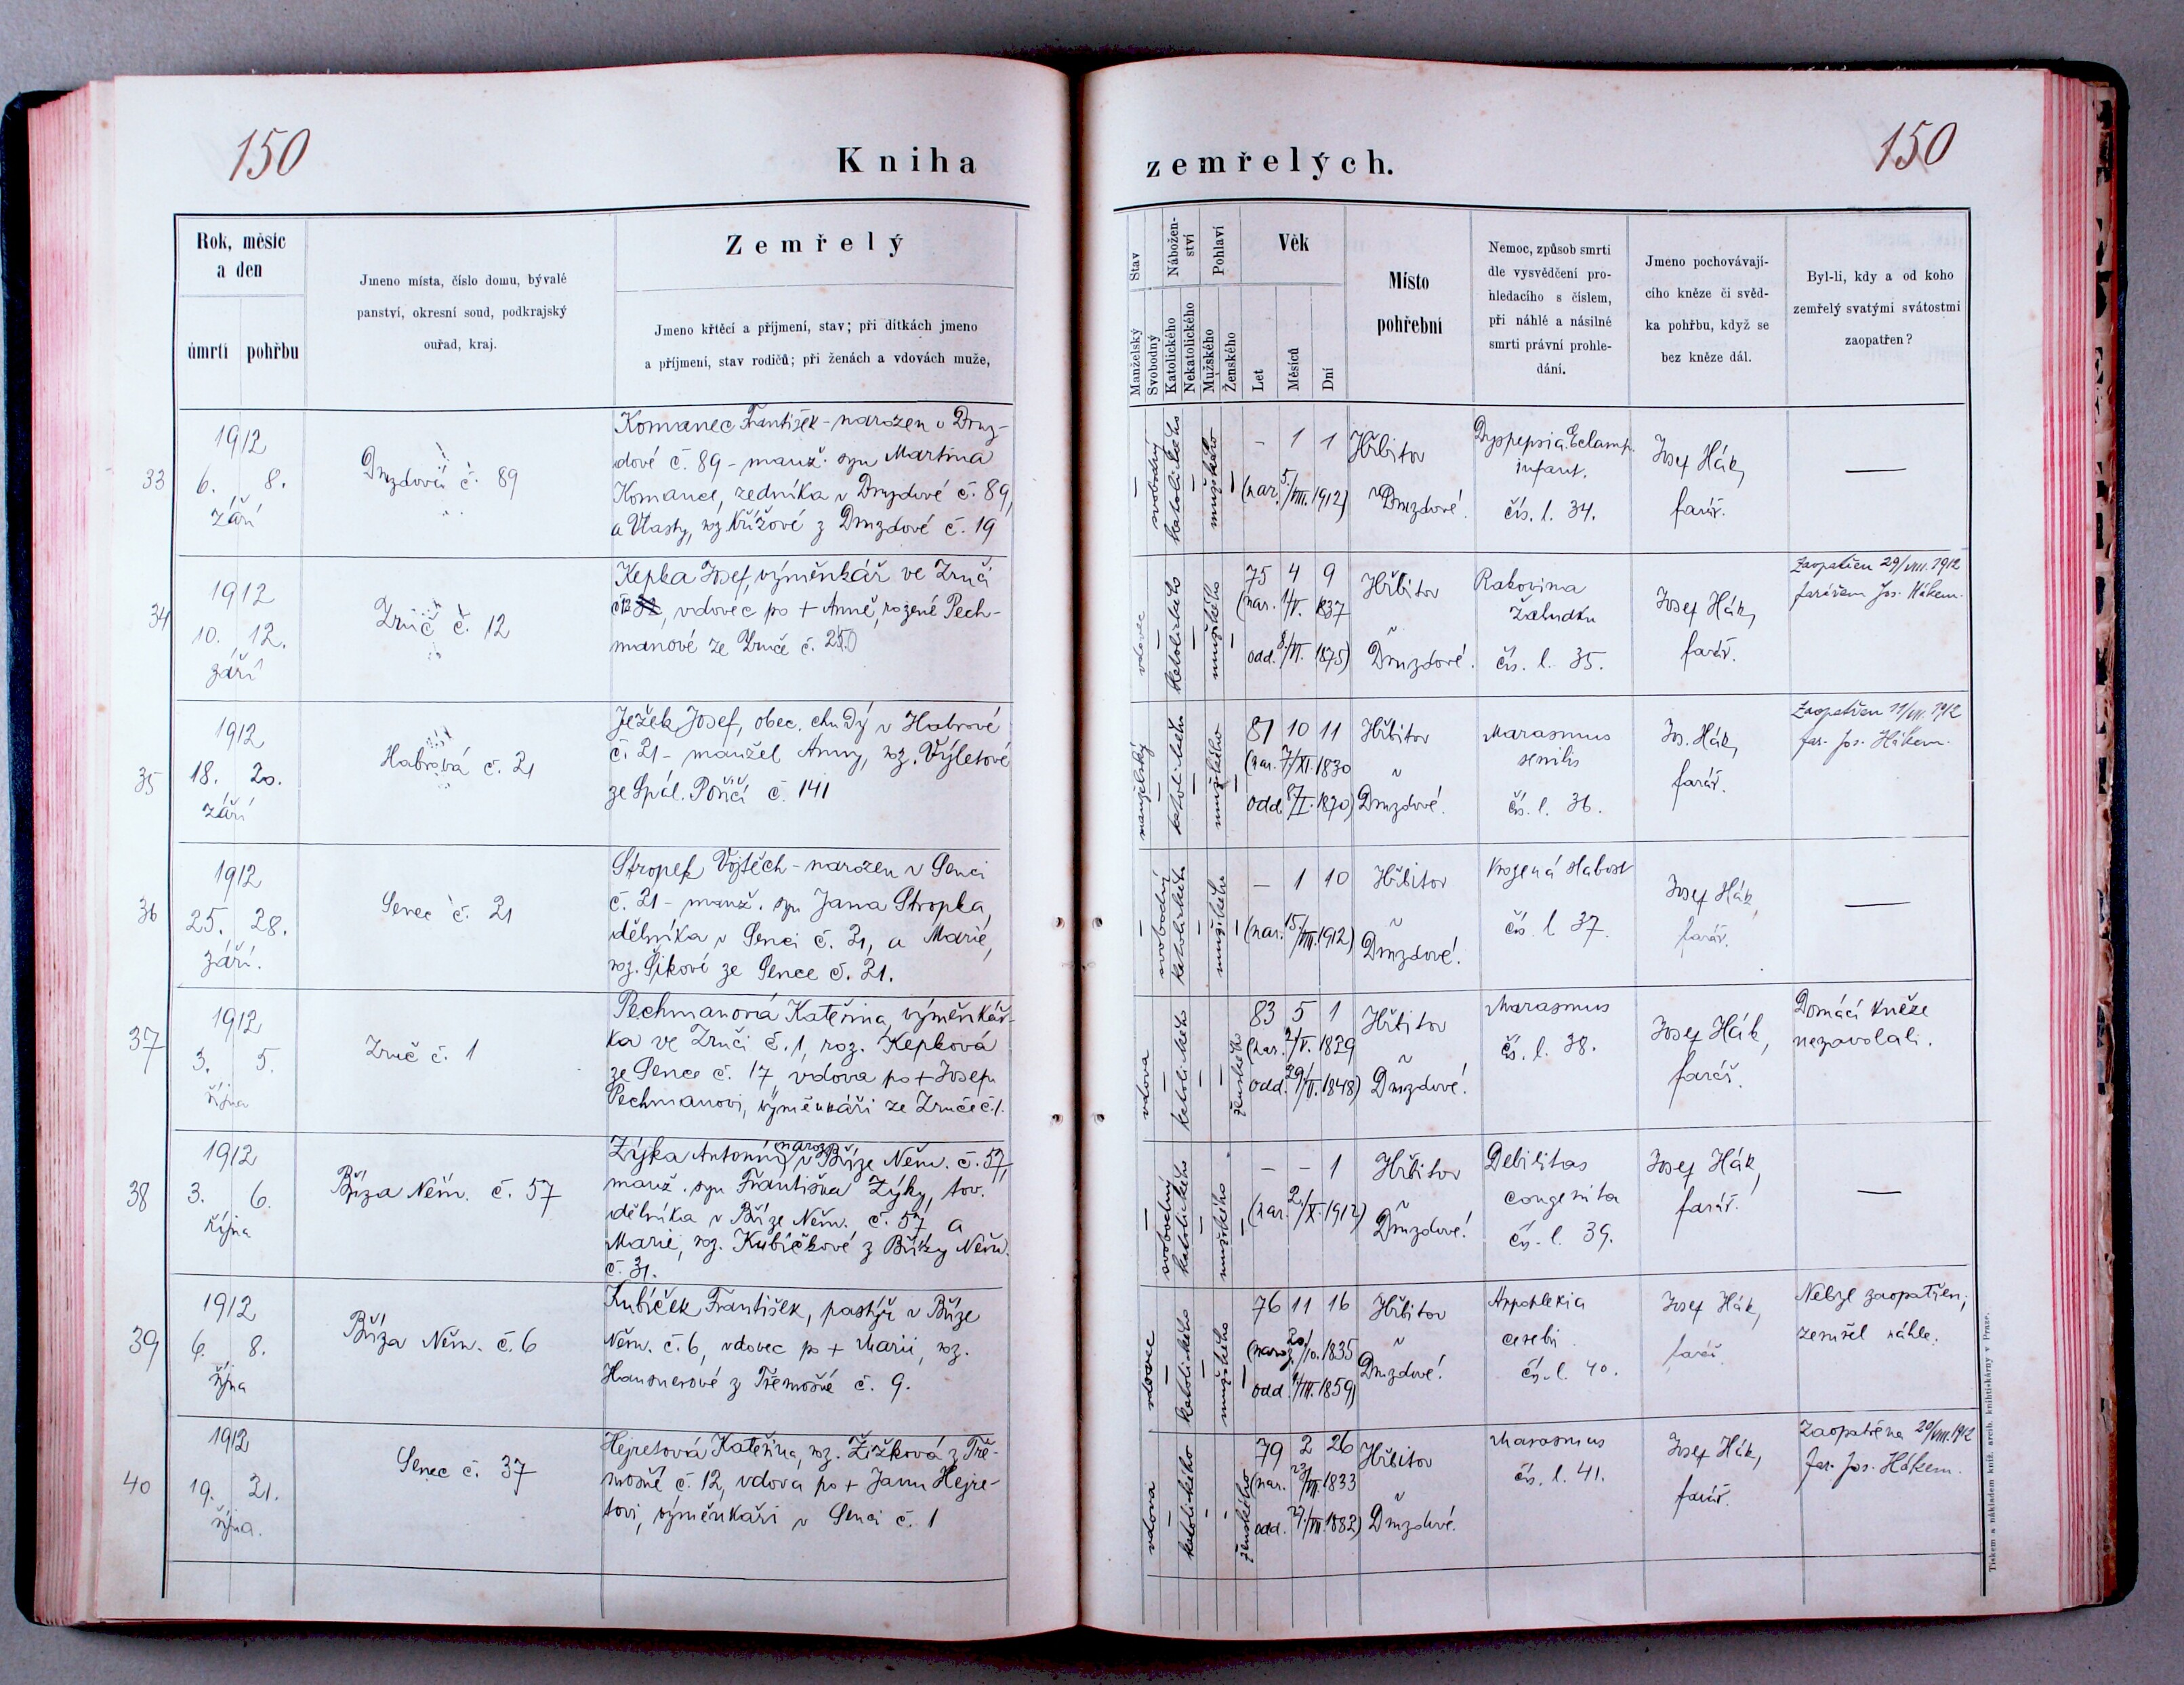 150
Kniha
Rok, měsíc
a den
úmrtí pohřbu
Jmeno místa, číslo domu, bývalé
panství, okresní soud, podkrajský
ouřad, kraj.
Zemřelý
Jmeno křtěcí a příjmení, stav; při dítkách jmeno
a příjmení, stav rodičů; při ženách a vdovách muže,
33
1912
6. 8.
září
Druzdová č. 89
Komanec František - narozen v Druz-
dové č. 89 - manž. syn Martina
Komance, zedníka v Druzdové č. 89,
a Vlasty, roz. Křížové z Druzdové č. 19
34
1912
10. 12.
září
Zruč č. 12
Kepka Josef, výměnkář ve Zruči
č. 12, vdovec po + Anně, rozené Pech-
manové ze Zruče č. 25.
35
1912
18. 20.
září
Habrová č. 21
Ježek Josef, obec. chudý v Habrové
č. 21 - manžel Anny, roz. Výletové
ze Spál. Poříčí č. 141
36
1912
25. 28.
září.
Senec č. 21
Stropek Vojtěch - narozen v Senci
č. 21 - manž. syn Jana Stropka,
dělníka v Senci č. 21, a Marie,
roz. Šikové ze Sence č. 21.
37
1912
3. 5.
října
Zruč č. 1
Pechmanová Kateřina, výměnkář-
ka ve Zruči č. 1, roz. Kepková
ze Sence č. 17, vdova po + Josefu
Pechmanovi, výměnkáři ze Zruče č. 1.
38
1912
3. 6.
října
Bříza Něm. č. 57
Zýka Antonín, naroz. v Bříze Něm. č. 57,
manž. syn Františka Zýky, tov.
dělníka v Bříze Něm. č. 57 a
Marie, roz. Kubíčkové z Břízy Něm.
č. 31.
39
1912
6. 8.
října
Bříza Něm. č. 6
Kubíček František, pastýř v Bříze
Něm. č. 6, vdovec po + Marii, roz.
Hausnerové z Třemošné č. 9.
40
1912
19. 21.
října.
Senec č. 37
Hejretová Kateřina, roz. Žižková z Tře-
mošné č. 12, vdova po + Janu Hejre-
tovi, výměnkáři v Senci č. 1
zemřelých.
150
Stav
Nábožen-
ství
Pohlaví
Věk
Manželský
Svobodný
Katolického
Nekatolického
Mužského
Ženského
Let
Měsíců
Dní
Místo
pohřební
Nemoc, způsob smrti
dle vysvědčení pro-
hledacího s číslem,
při náhlé a násilné
smrti právní prohle-
dání.
Jmeno pochovávají-
cího kněze či svěd-
ka pohřbu, když se
bez kněze dál.
Byl-li, kdy a od koho
zemřelý svatými svátostmi
zaopatřen?
svobodný
katolického
mužského
– 1 1
(nar. 5/VIII. 1912)
Hřbitov
v Druzdové.
Dyspepsia. Eclamp.
infant.
čís. l. 34.
Josef Hák,
farář.
—
vdovec
katolického
mužského
75 4 9
(nar. 1/V. 1837
odd. 8/VI. 1875)
Hřbitov
v
Druzdové.
Rakovina
žaludku
čís. l. 35.
Josef Hák,
farář.
Zaopatřen 29/VIII. 1912
farářem Jos. Hákem.
manželský
katolického
mužského
81 10 11
(nar. 7/XI. 1830
odd. 8/I. 1870)
Hřbitov
v
Druzdové.
Marasmus
senilis
čís. l. 36.
Jos. Hák,
farář.
Zaopatřen 11/VII. 1912
far. Jos. Hákem.
svobodný
katolického
mužského
– 1 10
(nar. 15/VIII. 1912)
Hřbitov
v
Druzdové.
Vrozená slabost
čís. l. 37.
Josef Hák,
farář.
—
vdova
katolického
ženského
83 5 1
(nar. 2/V. 1829
odd. 1848)
Hřbitov
v
Druzdové.
Marasmus
čís. l. 38.
Josef Hák,
farář.
Domácí kněze
nezavolali.
svobodný
katolického
mužského
– – 1
(nar. 2/X. 1912)
Hřbitov
v
Druzdové.
Debilitas
congenita
čís. l. 39.
Josef Hák,
farář.
—
vdovec
katolického
mužského
76 11 16
(naroz. 20/10. 1835
odd. 1859)
Hřbitov
v
Druzdové.
Appoplekia
cerebri
čís. l. 40.
Josef Hák,
farář.
Nebyl zaopatřen;
zemřel náhle.
vdova
katolického
ženského
79 2 26
(nar. 23/VII. 1833
odd. 1882)
Hřbitov
v
Druzdové.
Marasmus
čís. l. 41.
Josef Hák,
farář.
Zaopatřena 20/VIII. 1912
far. Jos. Hákem.
Tiskem a nákladem kníž. arcib. knihtiskárny v Praze.